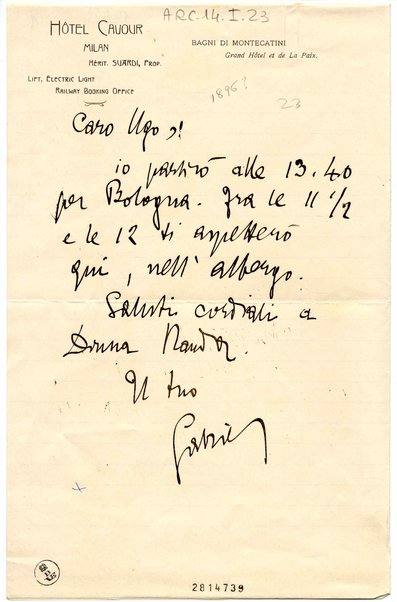 ARC.14.I.23
HÔTEL CAVOUR
MILAN
HÉRIT. SUARDI, PROP.
LIFT, ELECTRIC LIGHT
RAILWAY BOOKING OFFICE
BAGNI DI MONTECATINI
Grand Hôtel et de La Paix.
1896?
23
Caro Ugo,
io partirò alle 13.40
per Bologna. Fra le 11 1/2
e le 12 ti aspetterò
qui, nell' albergo.
Saluti cordiali a
Donna
Il tuo
Gabriel
2814739